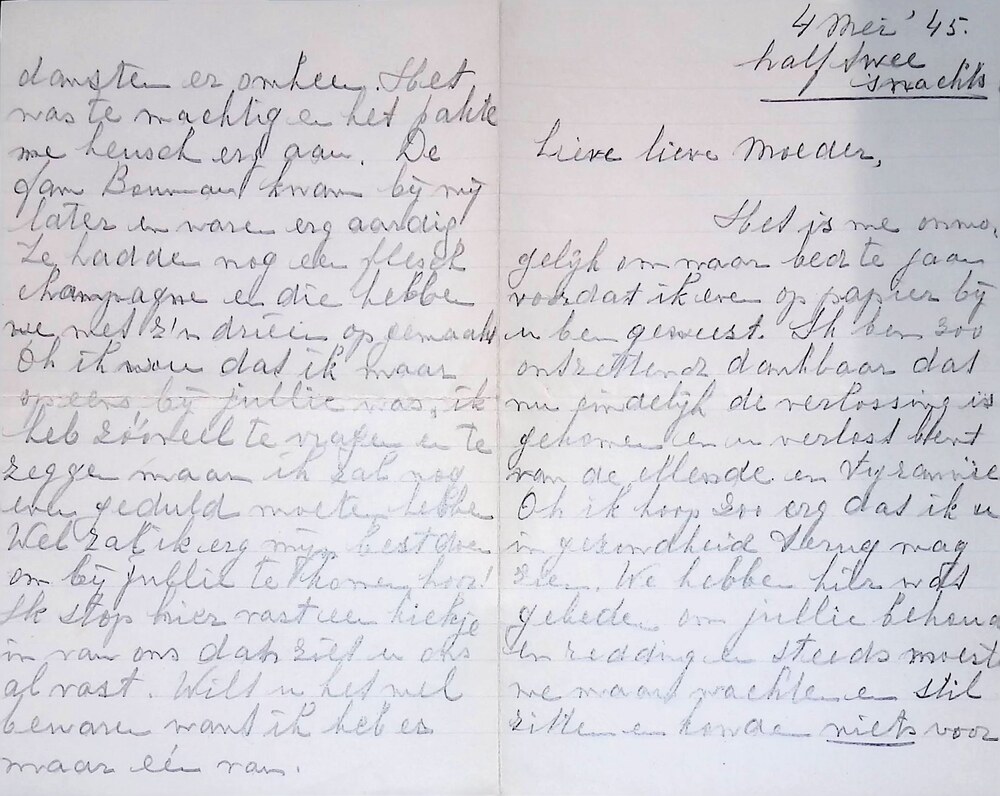 4 Mei '45.
half twee
's nachts.
Lieve lieve Moeder,
Het is me onmo,
gelijk om naar bed te gaan
voordat ik even op papier bij
u ben geweest. Ik ben zoo
ontzettend dankbaar dat
nu eindelijk de verlossing is
gekomen en u verlost bent
van de ellende en tyrannie
Oh ik hoop zoo erg dat ik u
in gezondheid terug mag
zien. We hebben hier wat
gebeden om jullie behoud
en redding en steeds moeste
we maar wachten en stil
zitten en konden niets voor
dansten er omheen. Het
was te machtig en het pakte
me heusch erg aan. De
fam Bouman kwam bij mij
later en waren erg aardig
Ze hadden nog een flesch
champagne en die hebben
we met z'n drieën op gemaakt
Oh ik wou dat ik maar
opeens bij jullie was, ik
heb zóóveel te vragen en te
zeggen maar ik zal nog
even geduld moeten hebben
Wel zal ik erg mijn best doen
om bij jullie te komen hoor!
Ik stop hier vast een kiekje
in van ons dan ziet u ons
al vast. Wilt u het wel
bewaren want ik heb er
maar één van.